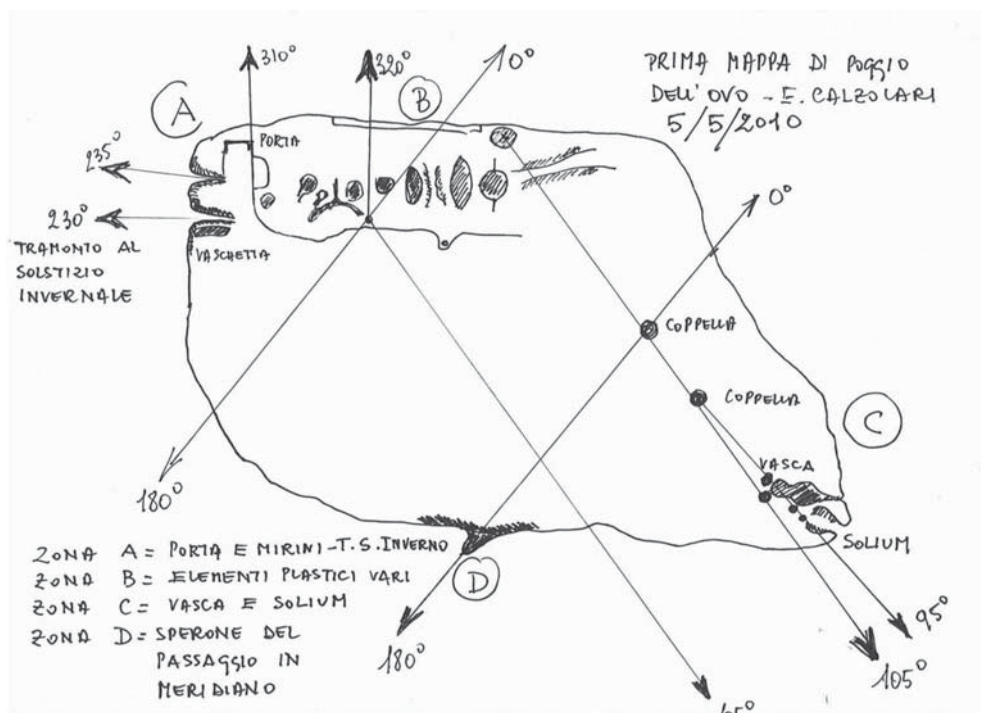 310°
320°
0°
B
PRIMA MAPPA DI POGGIO
DELL'OVO - E. CALZOLARI
5/5/2010
A
PORTA
235°
230°
TRAMONTO AL
SOLSTIZIO
INVERNALE
VASCHETTA
0°
COPPELLA
COPPELLA
C
VASCA
SOLIUM
180°
ZONA A = PORTA E MIRINI-T.S.INVERNO
ZONA B = ELEMENTI PLASTICI VARI
ZONA C = VASCA E SOLIUM
ZONA D = SPERONE DEL
PASSAGGIO IN
MERIDIANO
D
180°
95°
105°